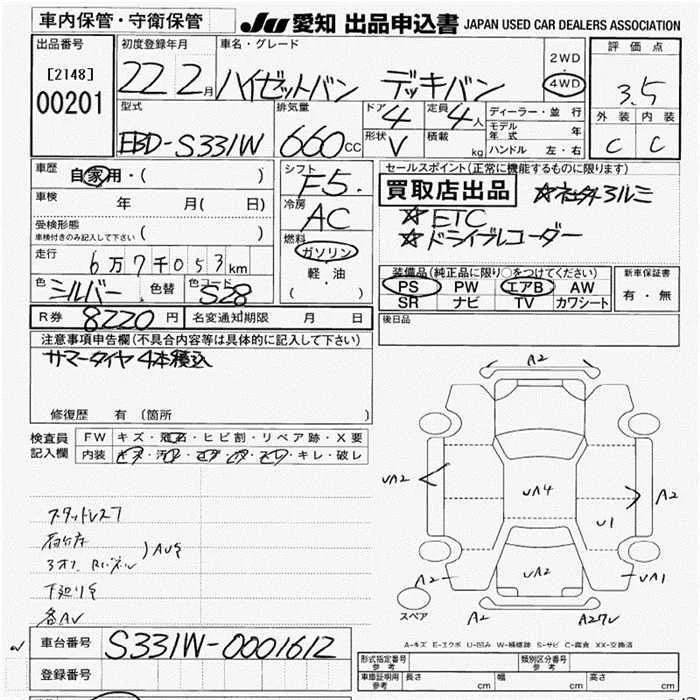 車内保管・守衛保管
JU 愛知 出品申込書 JAPAN USED CAR DEALERS ASSOCIATION
出品番号
[2148]
00201
初度登録年月
22 2月
車名・グレード
ハイゼットバン デッキバン
2WD
4WD
評価点
3.5
外装 内装
C C
型式
EBD-S331W
排気量
660cc
ドア 4
形状 V
定員 4人
積載 kg
ディーラー・並行
モデル年式 年
ハンドル 左・右
車歴 自家用・( )
車検 年 月( 日)
受検形態
車検付きのみ記入して下さい ( )
走行
6万7千053km
色 シルバー 色替 色コード S28
R券 8220円 名変通知期限 月 日
シフト
F5.
冷房
AC
燃料
ガソリン
軽・油
( )
セールスポイント(正常に機能するものに限ります)
買取店出品 ☆社外アルミ
☆ETC
☆ドライブレコーダー
装備品(純正品に限り○をつけてください)
PS PW エアB AW
SR ナビ TV カワシート
新車保証書
有・無
後日品
注意事項申告欄(不具合内容等は具体的に記入して下さい)
サマータイヤ4本積込
修復歴 有(箇所 )
検査員記入欄
FW キズ・飛石・ヒビ割・リペア跡・X要
内装 キズ・汚レ・コゲ・穴・スレ・キレ・破レ
スタッドレス7
下廻りS
各AV
A2
UA2
UA4
A2
U1
UA2
A2
UA1
スペア
A2
A-キズ E-エクボ U-凹み W-補修跡 S-サビ C-腐食 XX-交換済
車台番号 S331W-0001612
登録番号
型式指定番号 参考
類別区分番号 参考
車庫証明用 参考 長さ cm 幅 cm 高さ cm